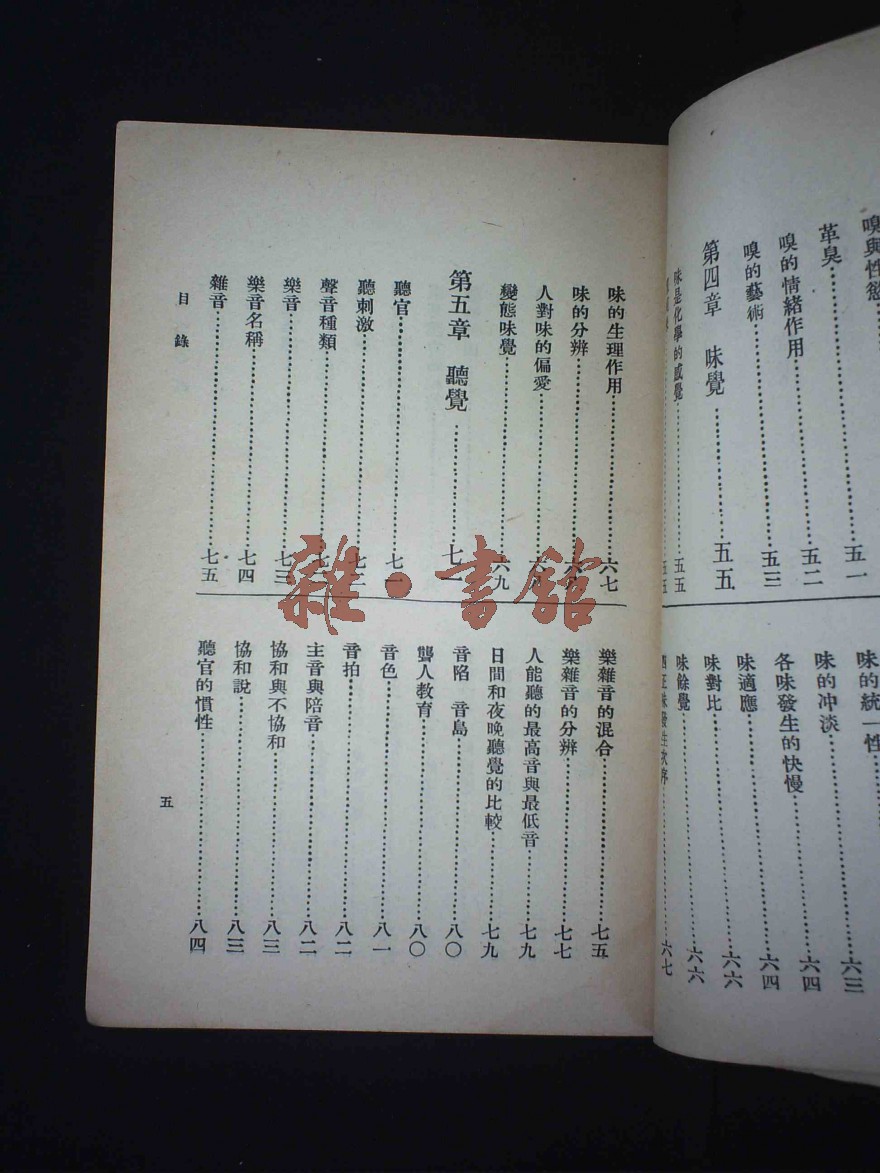 嗅與性慾
革臭……五一
嗅的情緒作用……五二
嗅的藝術……五三
第四章 味覺……五五
味是化學的感覺……五五
五五
味的統一性……六三
味的冲淡……六四
各味發生的快慢……六四
味適應……六六
味對比……六六
味餘覺……六六
四正味發生次序……六七
味的生理作用……六七
味的分辨
人對味的偏愛
變態味覺……六九
第五章 聽覺……七一
聽官……七一
聽刺激
聲音種類
樂音……七三
樂音名稱……七四
雜音……七五
樂雜音的混合……七五
樂雜音的分辨……七七
人能聽的最高音與最低音……七九
日間和夜晚聽覺的比較……七九
音陷 音島……八〇
聾人教育……八〇
音色……八一
音拍……八二
主音與陪音……八二
協和與不協和……八三
協和說……八三
聽官的慣性……八四
目錄
五
雜·書館